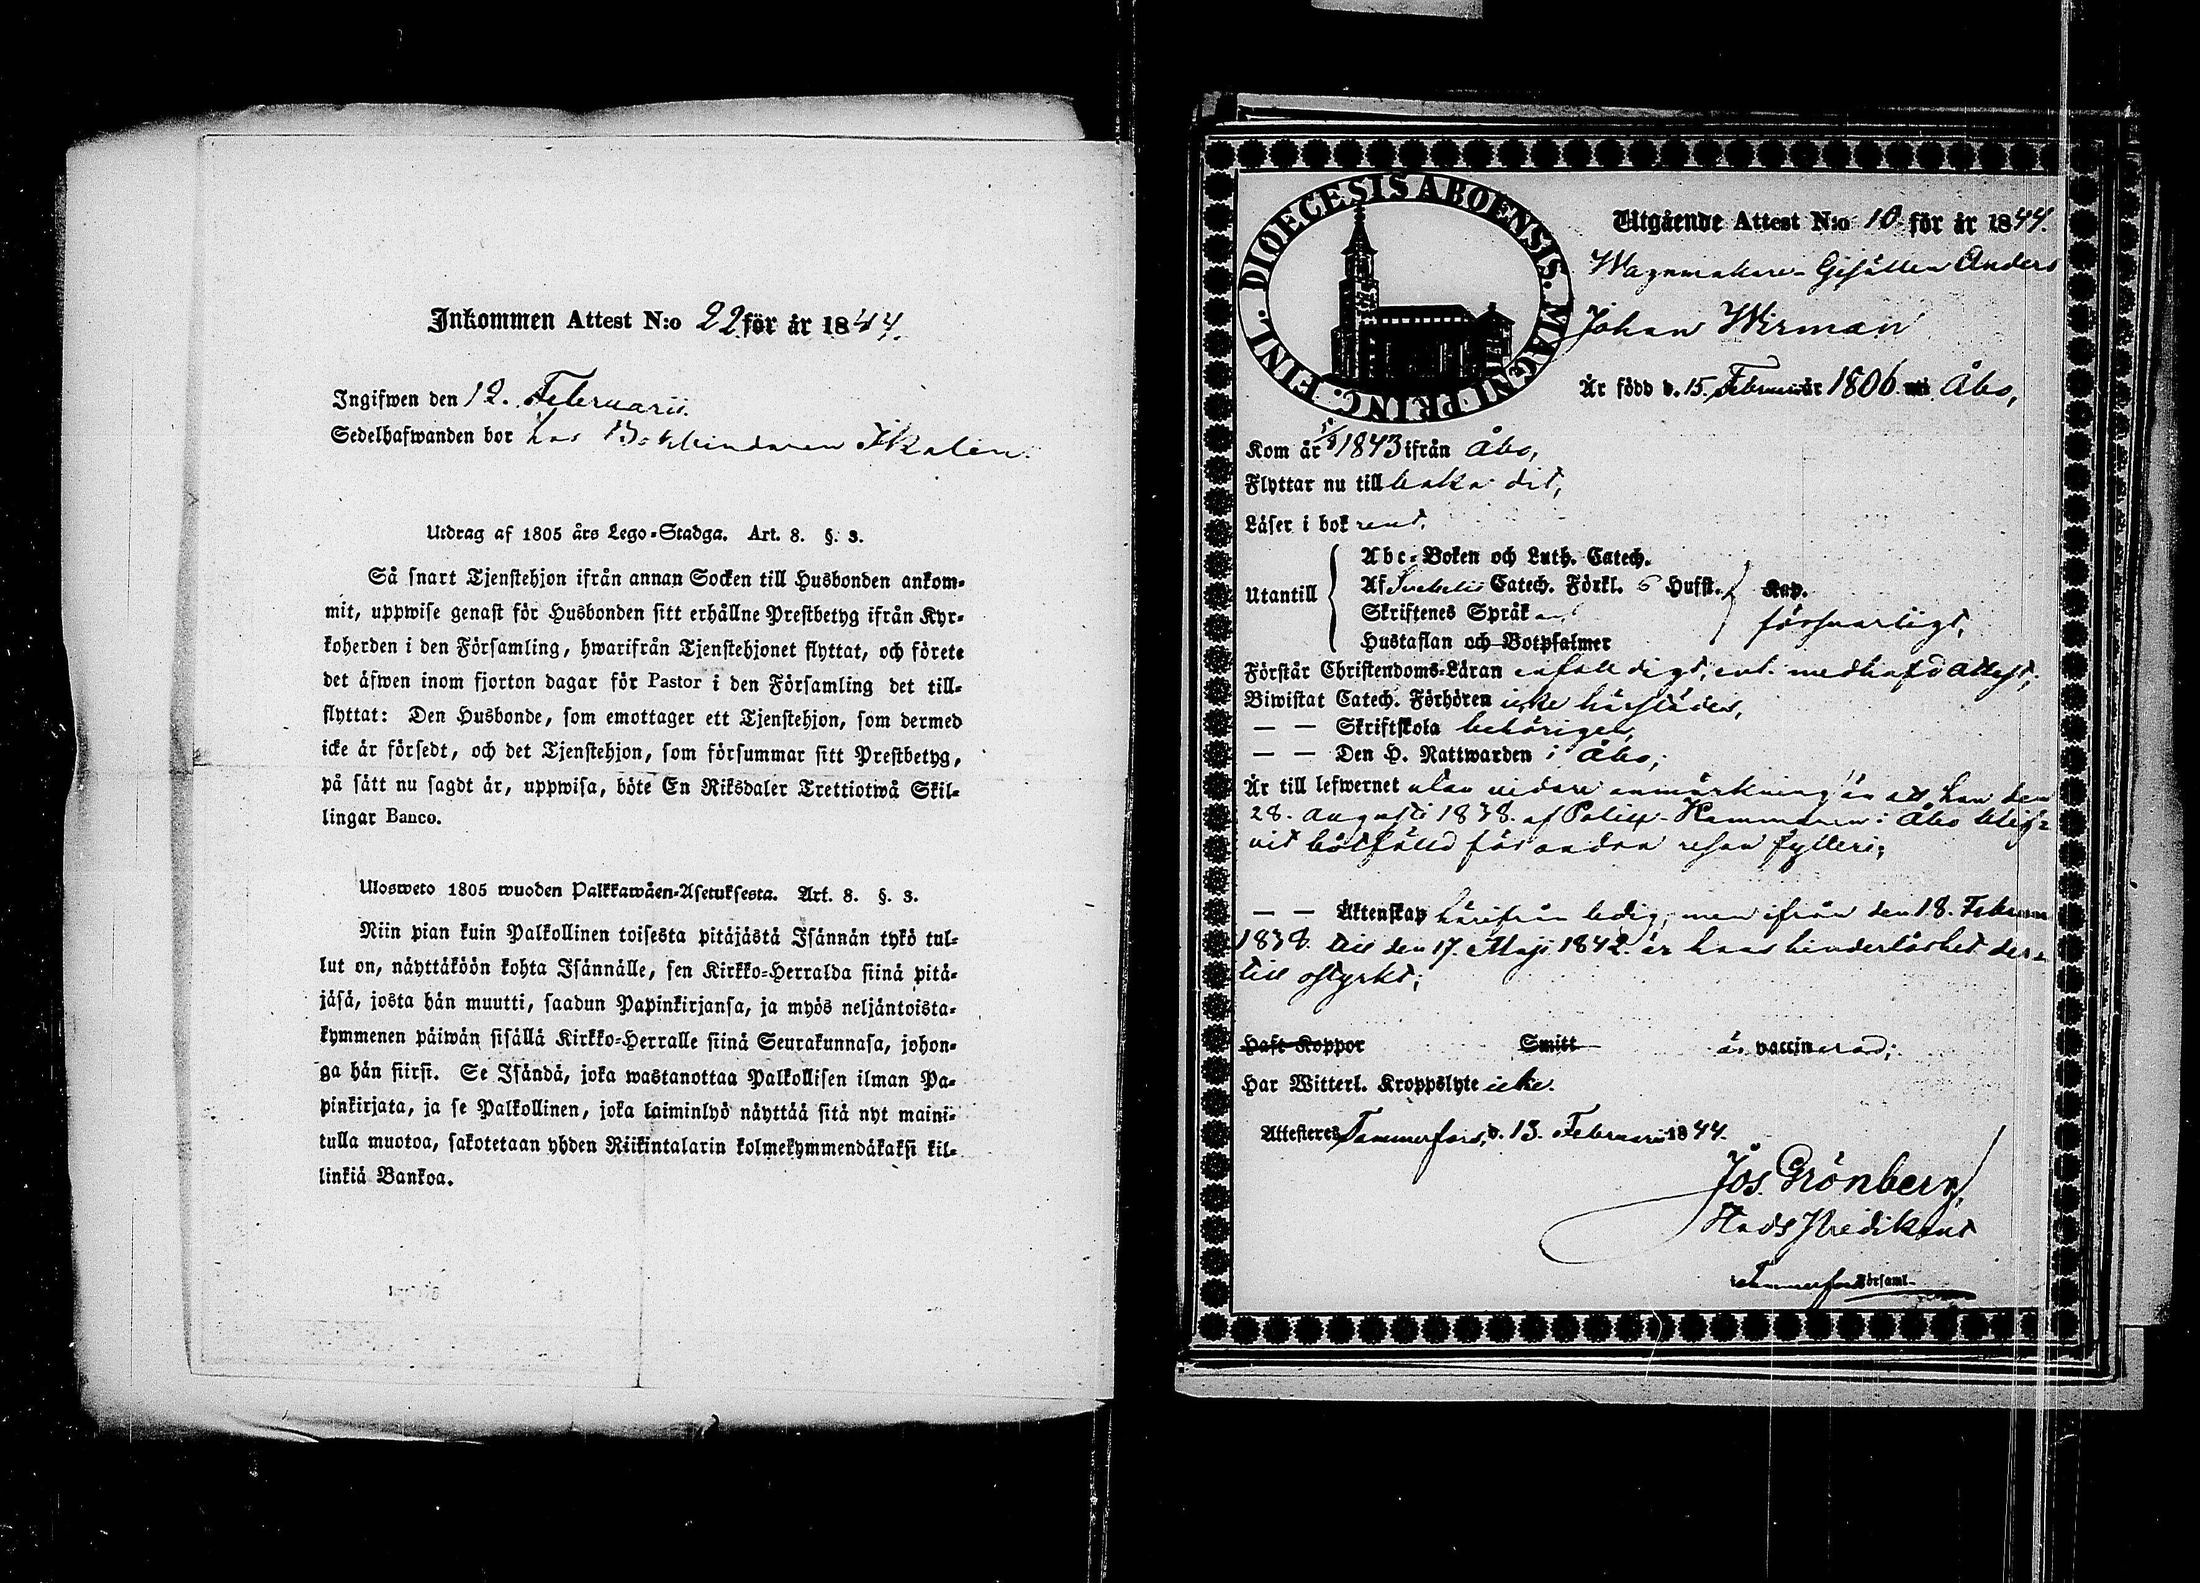 Inkommen Attest N:o 22 för år 1844.
Ingifwen den 12. Februarii.
Sedelhafwanden bor hos Bokbindaren Ikalén.
Utdrag af 1805 års Lego-Stadga. Art. 8. §. 3.
Så snart Tjenstehjon ifrån annan Socken till Husbonden ankom-
mit, uppwise genast för Husbonden sitt erhållne Prestbetyg ifrån Kyr-
koherden i den Församling, hwarifrån Tjenstehjonet flyttat, och förete
det äfwen inom fjorton dagar för Pastor i den Församling det till-
flyttat: Den Husbonde, som emottager ett Tjenstehjon, som dermed
icke är försedt, och det Tjenstehjon, som försummar sitt Prestbetyg,
på sätt nu sagdt är, uppwisa, böte En Riksdaler Trettiotwå Skil-
lingar Banco.
Ulosweto 1805 wuoden Palkkawäen-Asetuksesta. Art. 8. §. 3.
Niin pian kuin Palkollinen toisesta pitäjästä Isännän tykö tul-
lut on, näyttäköön kohta Isännälle, sen Kirkko-Herralda siinä pitä-
jäsä, josta hän muutti, saadun Papinkirjansa, ja myös neljäntoista-
kymmenen päiwän sisällä Kirkko-Herralle siinä Seurakunnasa, johon-
ga hän siirsi. Se Isändä, joka wastanottaa Palkollisen ilman Pa-
pinkirjata, ja se Palkollinen, joka laiminlyö näyttää sitä nyt maini-
tulla muotoa, sakotetaan yhden Riikintalarin kolmekymmendäkaksi kil-
linkiä Bankoa.
DIOECESIS ABOENSIS. MAGNI PRINC. FINL.
Utgående Attest N:o 10 för år 1844.
Wagnmakare-Gesällen Anders
Johan Wirman
Är född d. 15. Februarii år 1806 uti Åbo,
Kom år 1843 ifrån Åbo,
Flyttar nu tillbaka dit,
Läser i bok rent,
Utantill
Abc-Boken och Luth. Catech.
Af Svebelii Catech. Förkl. 6 Hufst. Kap.
Skriftenes Språk
försvarligt,
Hustaflan och Botpsalmer
Förstår Christendoms-Läran enfaldigt, enl. medhafd attest;
Biwistat Catech. Förhören icke härstädes,
— — Skriftskola behörigen,
— — Den H. Nattwarden i Åbo;
Är till lefwernet utan vidare anmärkning än att han den
28. Augusti 1838. af Politie-Kammaren i Åbo blif-
vit bötfälld för andra resan fylleri;
— — Äktenskap härifrån ledig, men ifrån den 18. Februarii
1838 till den 17. Maji 1842 är hans hinderlöshet der-
till ostyrkt;
Haft Koppor Smitt är vaccinerad;
Har Witterl. Kroppslyte icke.
Attesteres Tammerfors, d. 13. Februarii 1844.
Jos. Grönberg,
Stads Predikant
Tammerfors Församl.